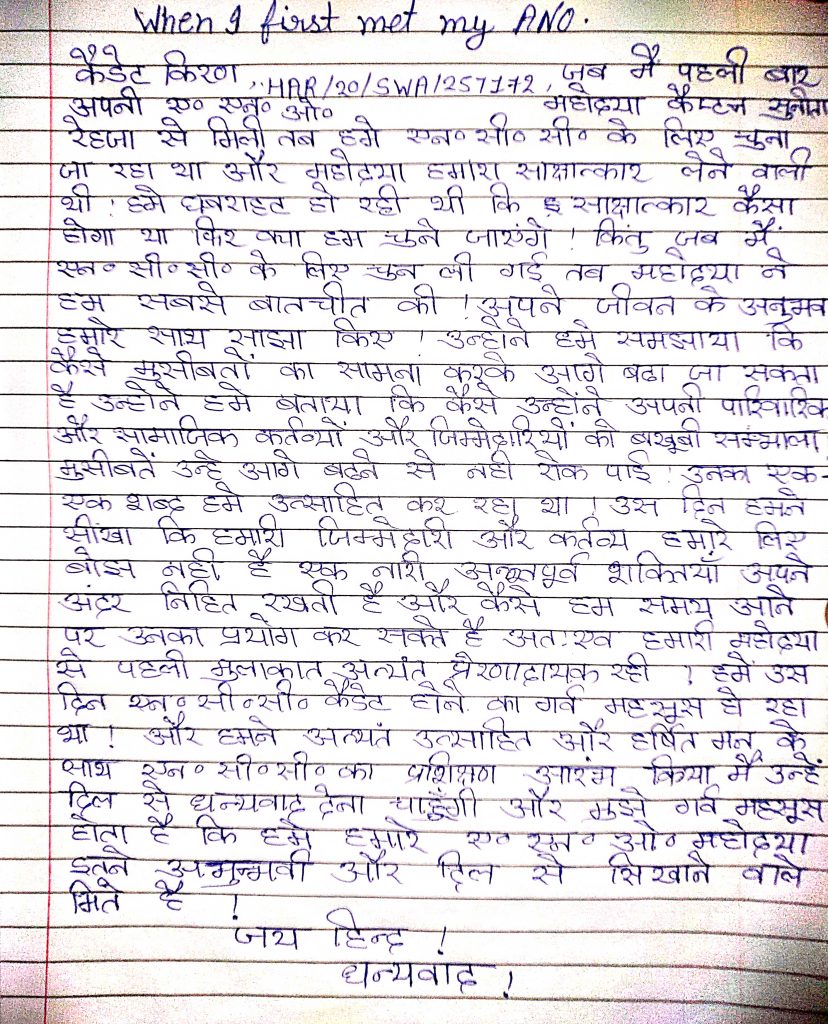 When I first met my ANO.
कैडेट किरण, HAR/20/SWA/257172, जब मैं पहली बार
अपनी ए० एन० ओ० महोदया कैप्टन सुनीता
रेहजा से मिली तब हमे एन० सी० सी० के लिए चुना
जा रहा था और महोदया हमारा साक्षात्कार लेने वाली
थी ! हमे घबराहट हो रही थी कि साक्षात्कार कैसा
होगा या फिर क्या हम चुने जाएंगे ! किंतु जब मैं
एन० सी० सी० के लिए चुन ली गई तब महोदया ने
हम सबसे बातचीत की ! अपने जीवन के अनुभव
हमारे साथ साझा किए ! उन्होने हमे समझाया कि
कैसे मुसीबतों का सामना करके आगे बढा जा सकता
है उन्होने हमे बताया कि कैसे उन्होंने अपनी पारिवारिक
और सामाजिक कर्तव्यों और जिम्मेदारियों को बखूबी सम्भाला
मुसीबतें उन्हे आगे बढने से नही रोक पाई ! उनका एक-
एक शब्द हमे उत्साहित कर रहा था ! उस दिन हमने
सीखा कि हमारी जिम्मेदारी और कर्तव्य हमारे लिए
बोझ नही है एक नारी अभूतपूर्व शक्तियाँ अपने
अंदर निहित रखती है और कैसे हम समय आने
पर उनका प्रयोग कर सकते है अतःएव हमारी महोदया
से पहली मुलाकात अत्यंत प्रेरणादायक रही ! हमें उस
दिन एन० सी० सी० कैडेट होने का गर्व महसूस हो रहा
था ! और हमने अत्यतं उत्साहित और हर्षित मन के
साथ एन० सी० सी० का प्रशिक्षण आरंभ किया मैं उन्हें
दिल से धन्यवाद देना चाहूंगी और मुझे गर्व महसूस
होता है कि हमे हमारे ए० एन० ओ० महोदया
इतने अनुभवी और दिल से सिखाने वाले
मिले है !
जय हिन्द !
धन्यवाद !